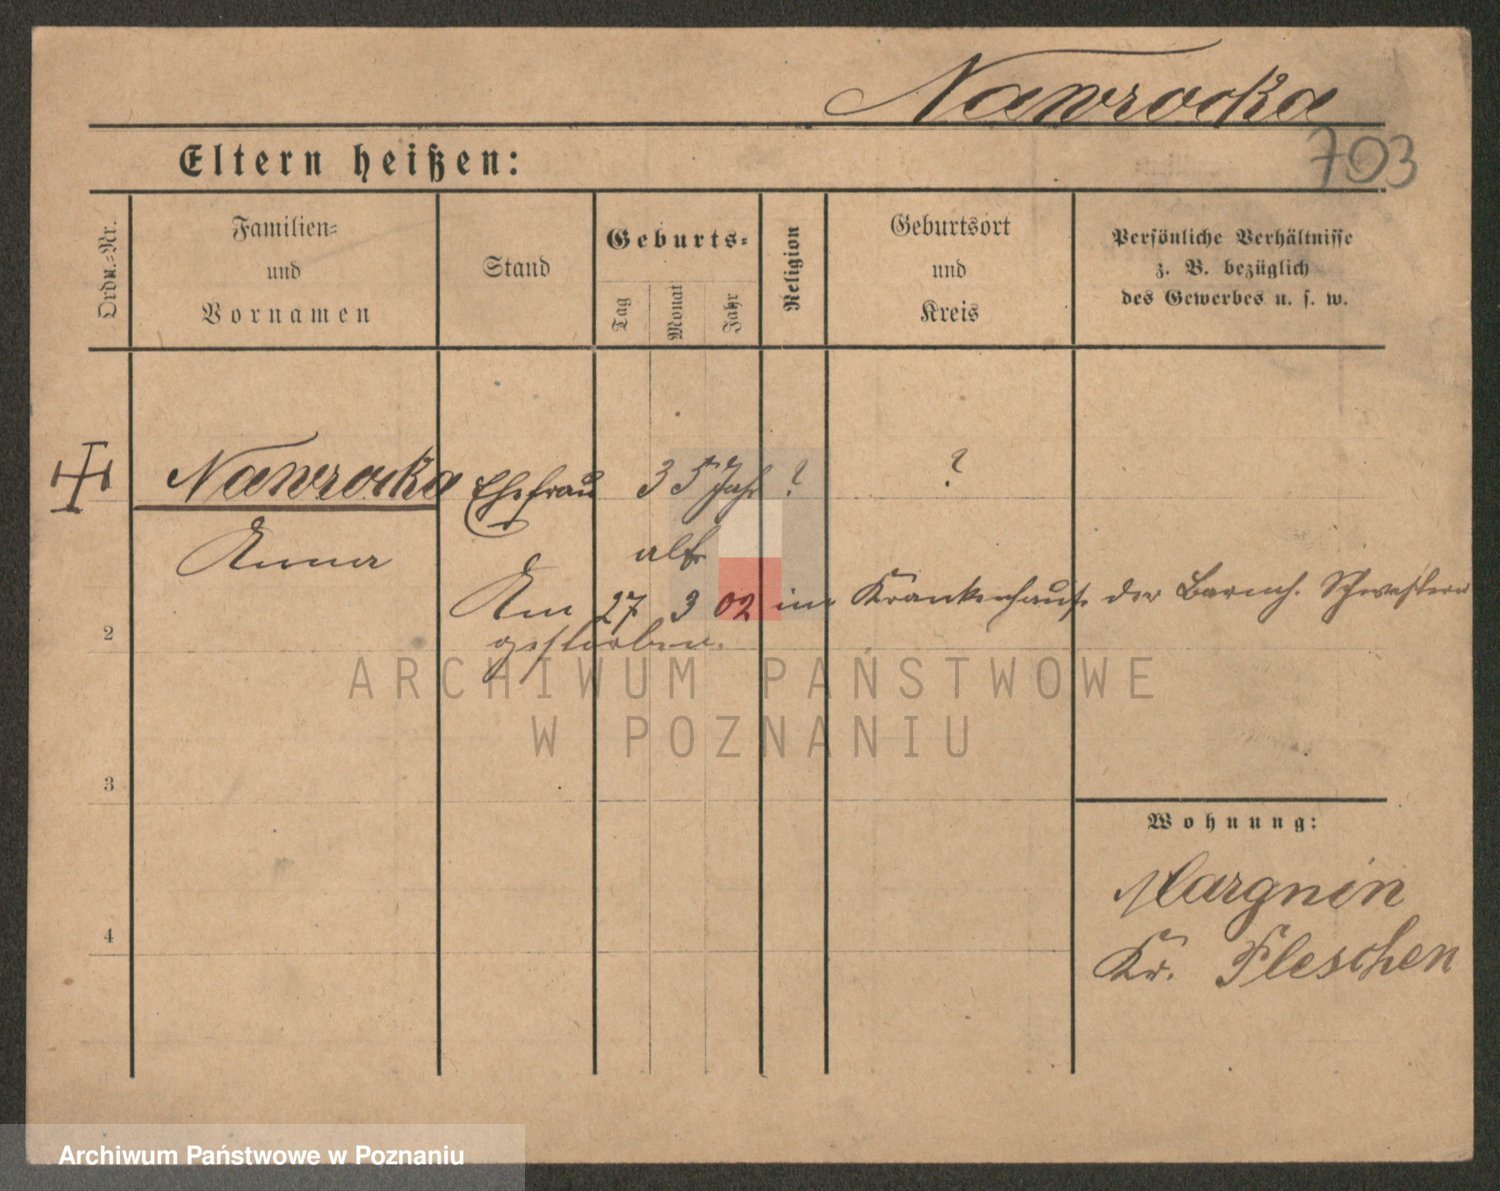 Nawrocka
703
Eltern heißen:
Ordn.-Nr.
Familien-
und
Vornamen
Stand
Geburts-
Tag
Monat
Jahr
Religion
Geburtsort
und
Kreis
Persönliche Verhältnisse
z. B. bezüglich
des Gewerbes u. s. w.
Nawrocka Ehefrau 35 Jahr ? ?
Anna alt
Am 27 3 02 im Krankenhause der Barmh. Schwestern
2
gestorben.
ARCHIWUM PAŃSTWOWE
W POZNANIU
3
Wohnung:
Margnin
4
Kr. Pleschen
Archiwum Państwowe w Poznaniu